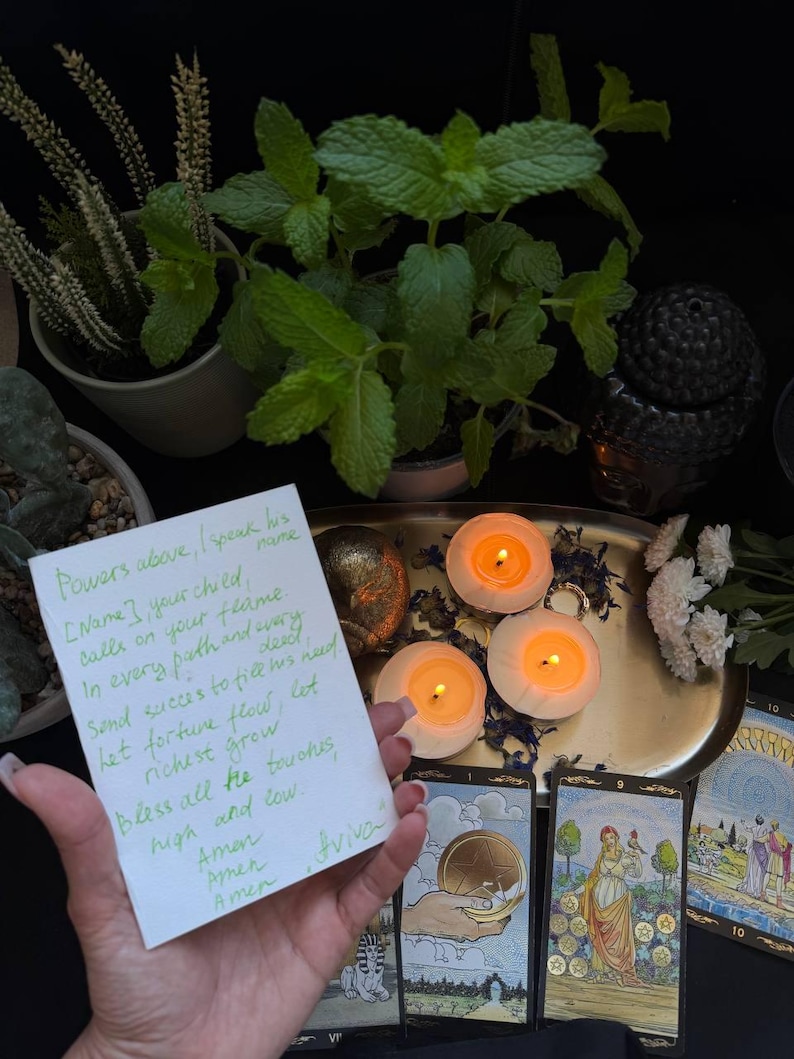 Powers above, I speak his
name
[Name], your child,
calls on your flame.
In every path and every
deed,
Send succes to fill his need.
Let fortune flow, let
richest grow
Bless all he touches,
high and low.
Amen
Amen
Amen
"Aviva"
1
9
10
10
VII